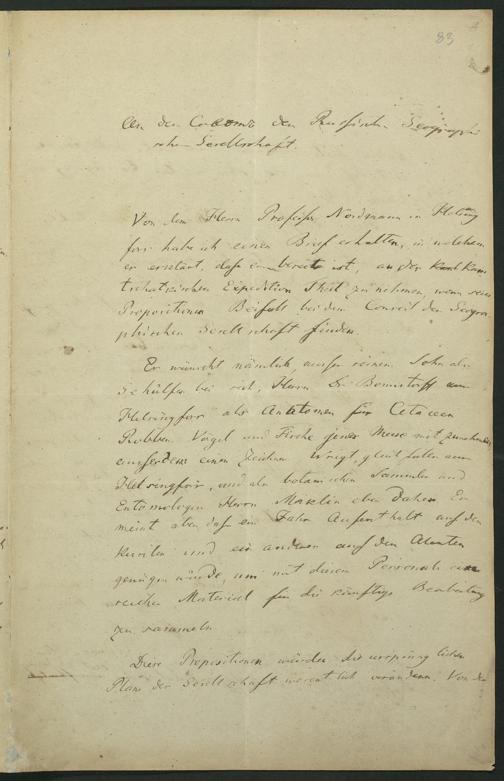 83
An den Conseil der Russischen Geographi
schen Gesellschaft.
Von dem Herrn Professor Nordmann in Helsing
fors habe ich einen Brief erhalten, in welchem
er erklärt, daß er bereit ist, an der Kamt
schatkischen Expedition Theil zu nehmen, wenn seine
Propositionen Beifall bei dem Conseil der Geogra
phischen Gesellschaft finden.
Er wünscht nämlich außer seinem Sohn als
Gehülfen bei sich, Herrn Dr Bonsdorff aus
Helsingfors als Anatomen für Cetaceen
Robben Vögel und Fische jener Meere mitzunehmen,
außerdem einen Zeichner Wright, gleichfalls aus
Helsingfors, und als botanischen Sammler und
Entomologen Herrn Mäklin eben daher. Er
meint aber daß ein Jahr Aufenthalt auf den
Kurilen und ein anderes auf den Aleuten
genügen würde, um mit diesem Personale ein
reiches Material für die künftige Bearbeitung
zu sammeln.
Diese Propositionen würden die ursprünglichen
Plane der Gesellschaft wesentlich verändern. Von den